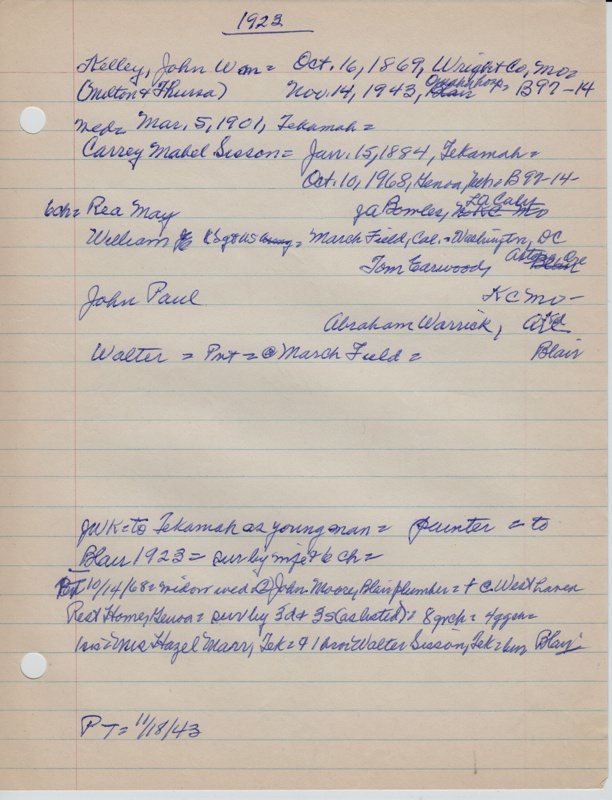 1923
Kelley, John Wm = Oct. 16, 1869, Wright Co, Mo =
(Milton & Thursa) Nov. 14, 1943, Omaha hosp = Blair B97-14
med = Mar. 5, 1901, Tekamah =
Carrey Mabel Sisson = Jan. 15, 1884, Tekamah =
Oct. 10, 1968, Genoa, B97-14-
6ch = Rea May JA Bowles, LA Calif KC Mo
William = March Field, Cal. = Washington, DC
Tom Earwood, Blair
John Paul KC Mo -
Abraham Warrick,
Walter = Pvt = @ March Field = Blair
JWK = to Tekamah as young man = painter = to
Blair 1923 = sur by wife & 6 ch =
10/14/68 = widow wed (2) John Moore, Blair plumber = + @ West Haven
Rest Home, Genoa = sur by 3d & 3s (as listed) = 8 grch = 4ggch =
sis = Mrs Hazel Marr, Tek = & 1 bro Walter Sisson, Tek = bur Blair
PT = 11/18/43